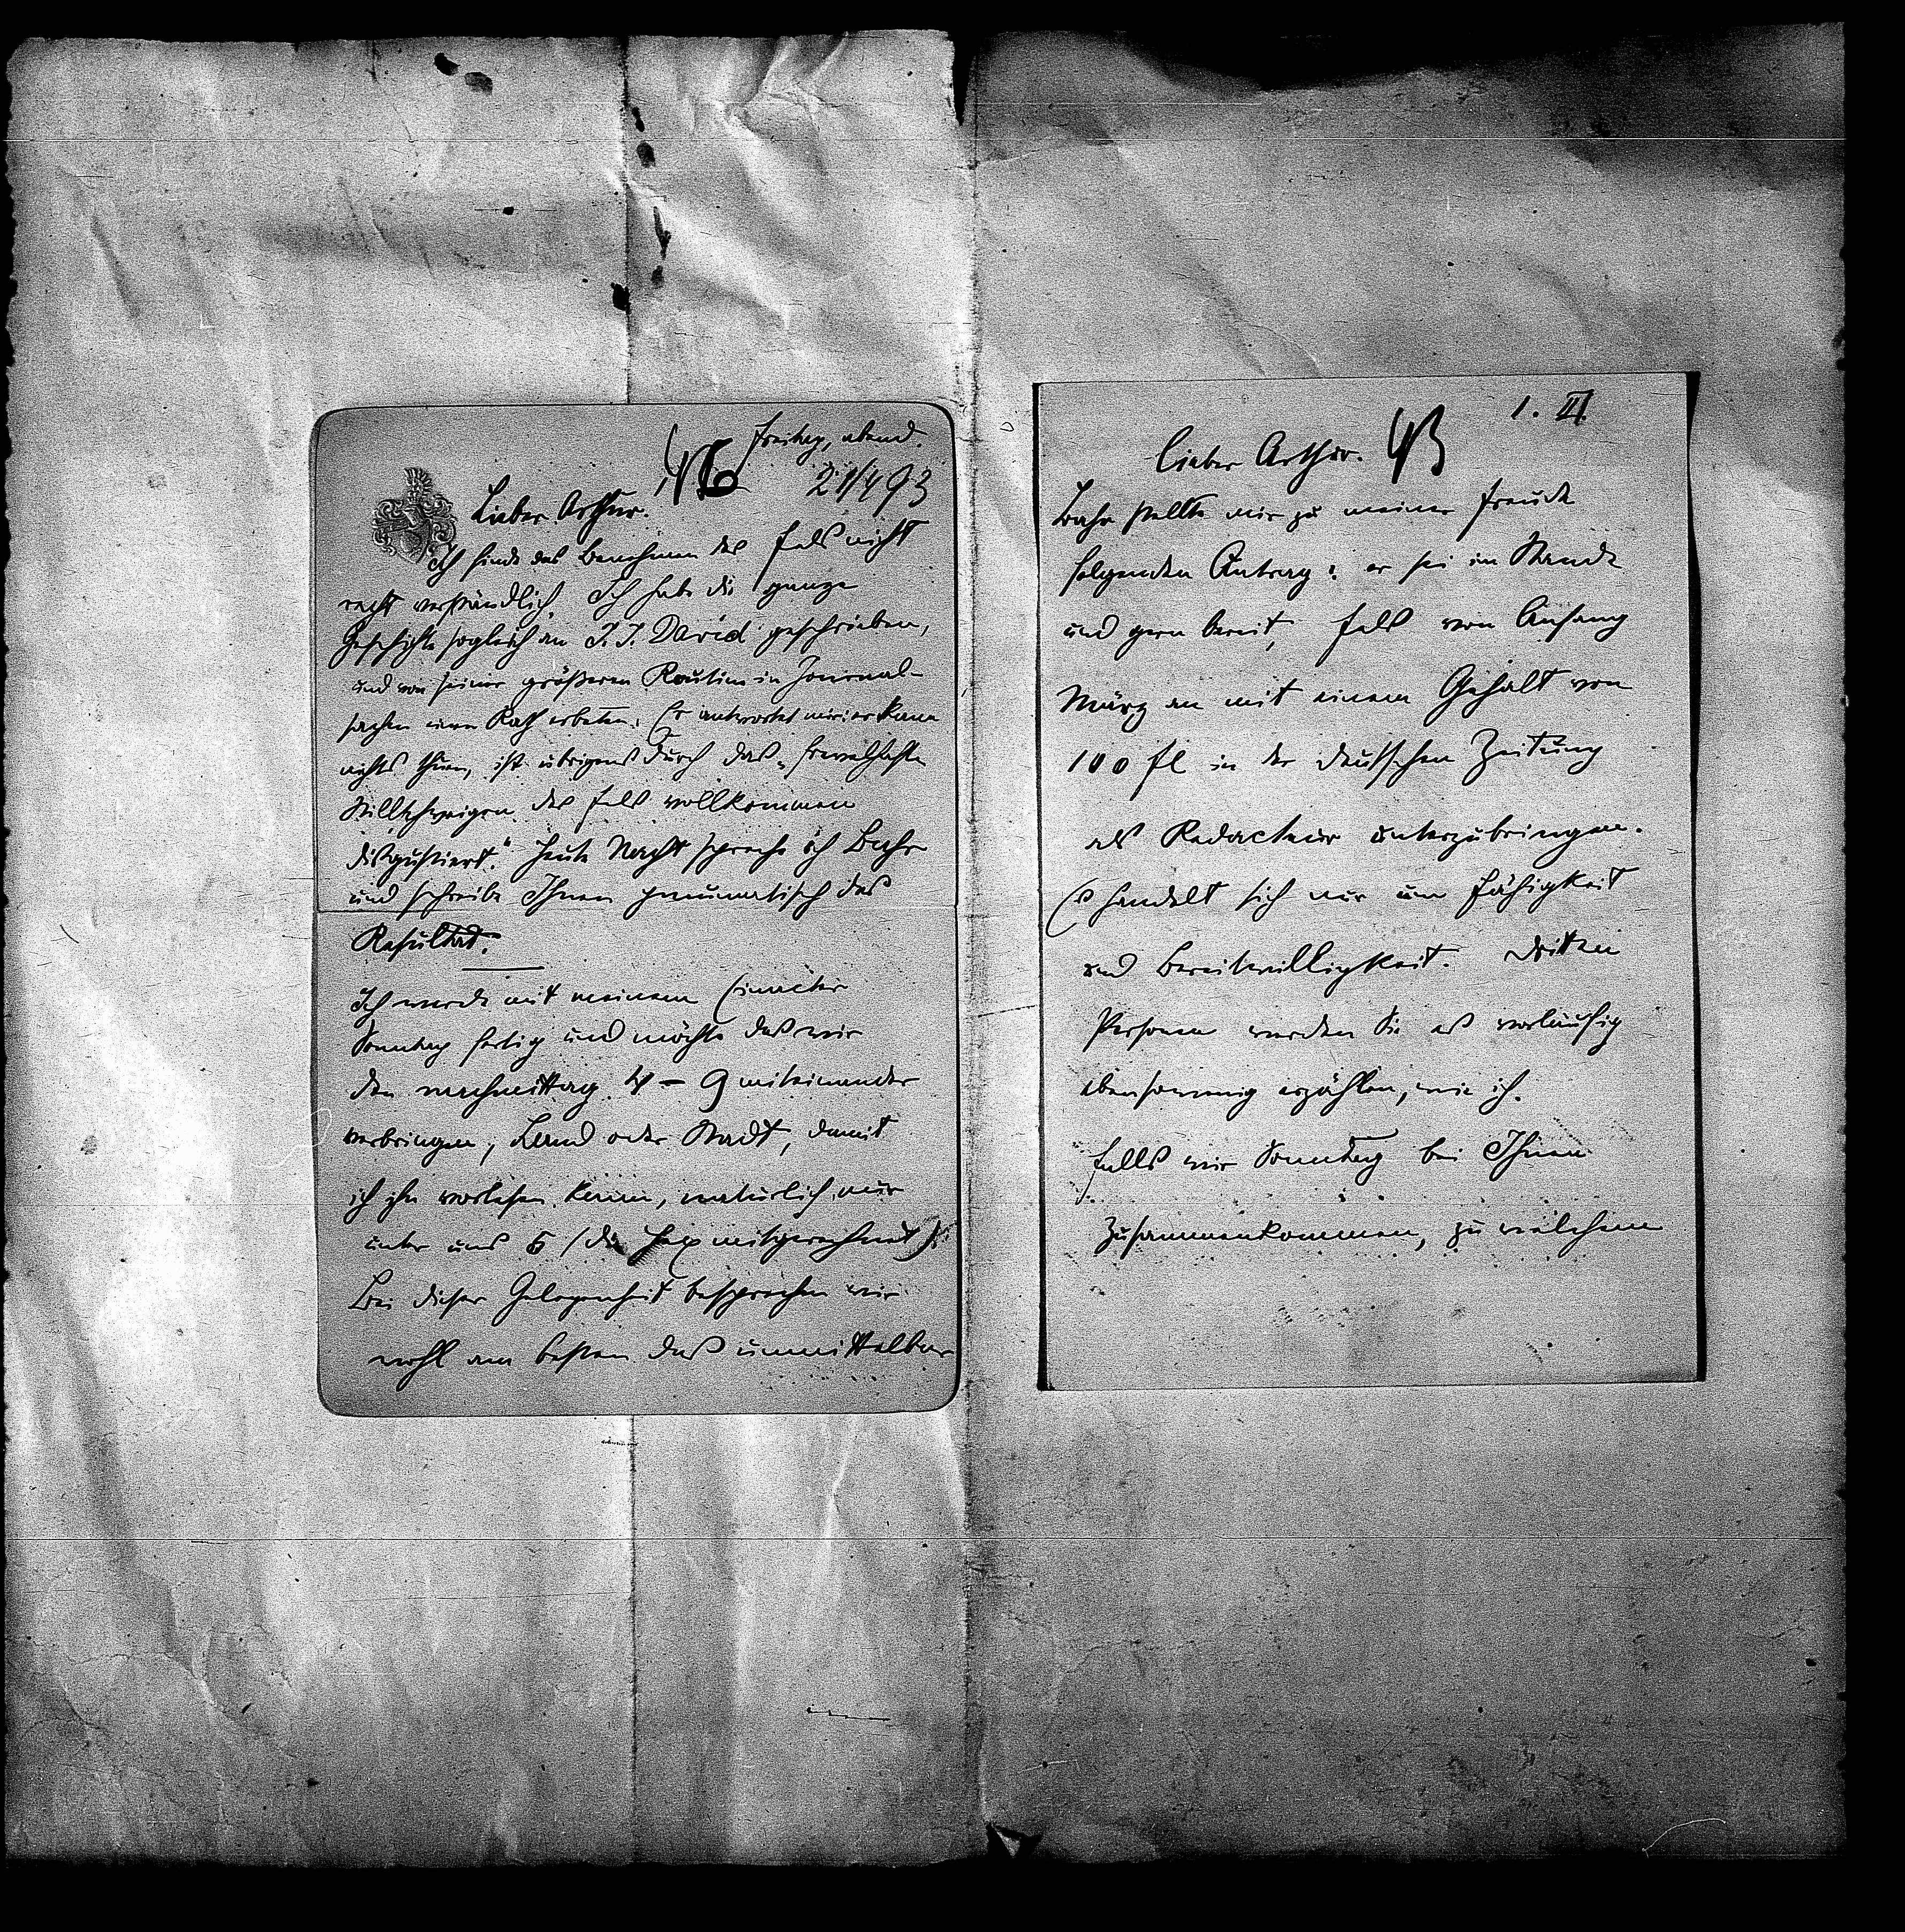 Freitag, abend.
46 21/4 93
Lieber Arthur.
Ich finde das Benehmen des Fels nicht
recht verständlich. Ich habe die ganze
Geschichte sogleich an J. J. David geschrieben,
und von seiner größeren Routine in Journal-
sachen einen Rath erbeten. Er antwortet mir: er kann
nichts thun, ist übrigens durch das „frevelhafte
Stillschweigen des Fels vollkommen
disgustiert." Heute Nacht spreche ich Bahr
und schreibe Ihnen pneumatisch das
Resultat.
Ich werde mit meinem Einacter
Sonntag fertig und möchte daß wir
den nachmittag 4 – 9 miteinander
verbringen, Land oder Stadt, damit
ich ihn vorlesen kann, natürlich nur
unter uns 5 (die mitgerechnet).
Bei dieser Gelegenheit besprechen wir
wohl am besten das unmittelbar
1. II.
Lieber Arthur. 43
Bahr stellte mir zu meiner Freude
folgenden Antrag: er sei im Stande
und gern bereit, Fels vom Anfang
März an mit einem Gehalt von
100 fl in der deutschen Zeitung
als Redacteur unterzubringen.
Es handelt sich nur um Fähigkeit
und Bereitwilligkeit. Dritten
Personen werden Sie es vorläufig
ebensowenig erzählen, wie ich.
Falls wir Sonntag bei Ihnen
zusammenkommen, zu welchem